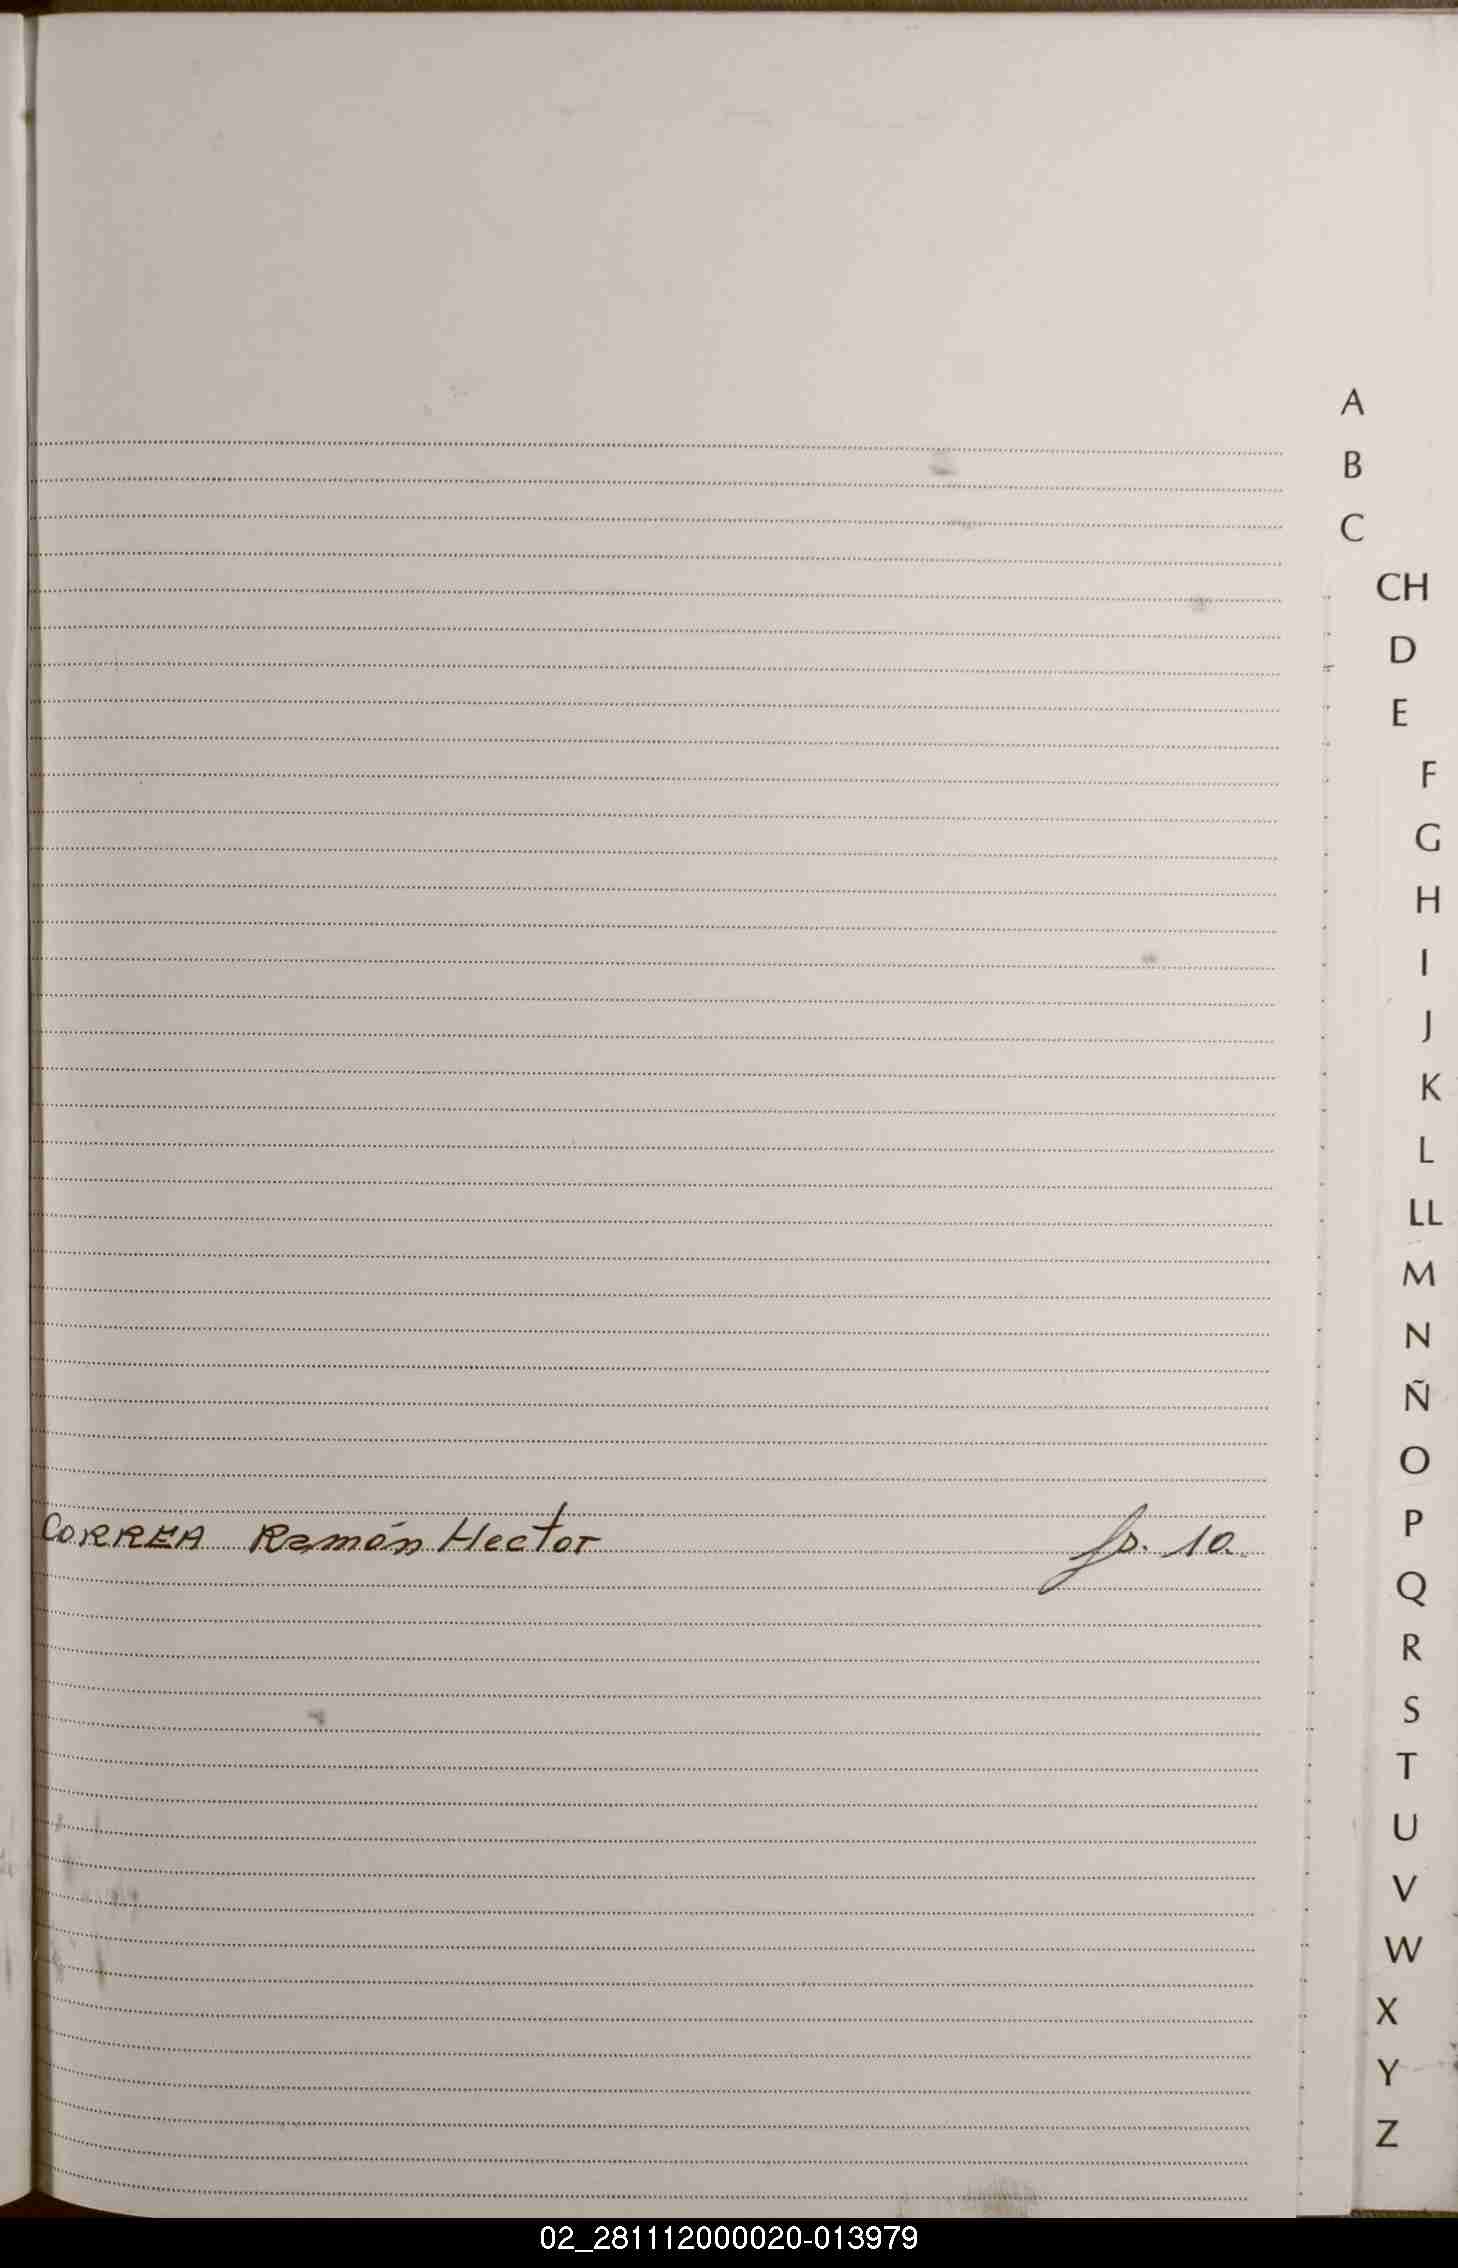 A
B
C
CH
D
E
F
G
H
I
J
K
L
LL
M
N
Ñ
O
CORREA Ramón Hector fs. 10.
P
Q
R
S
T
U
V
W
X
Y
Z
02_281112000020-013979